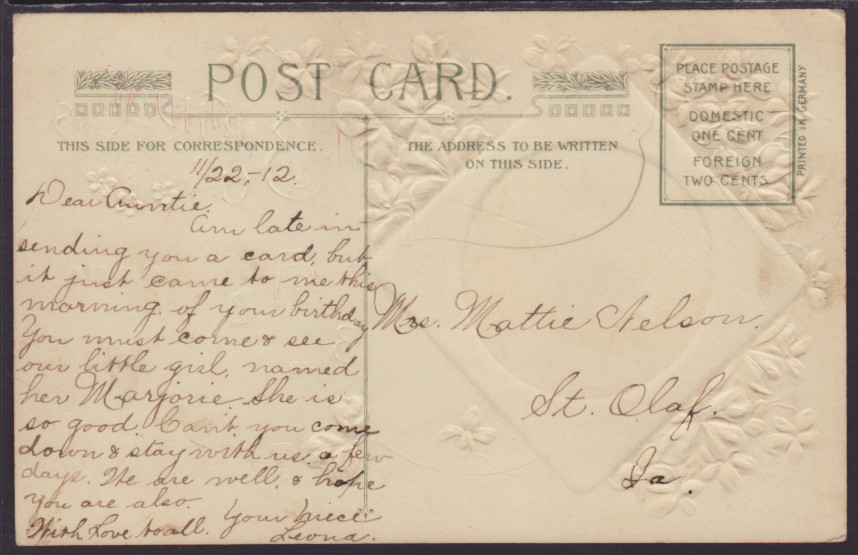 POST CARD.
PLACE POSTAGE
STAMP HERE
DOMESTIC
ONE CENT
FOREIGN
TWO CENTS
PRINTED IN GERMANY
THIS SIDE FOR CORRESPONDENCE.
THE ADDRESS TO BE WRITTEN
ON THIS SIDE.
11/22,-12.
Dear Auntie.
Am late in
sending you a card, but
it just came to me this
morning of your birthday
You must come & see
our little girl, named
her Marjorie She is
so good. Can't you come
down & stay with us a few
days. We are well, & hope
you are also.
With Love to all. Your Niece
Leona.
Mrs. Mattie Nelson.
St. Olaf.
Ia.